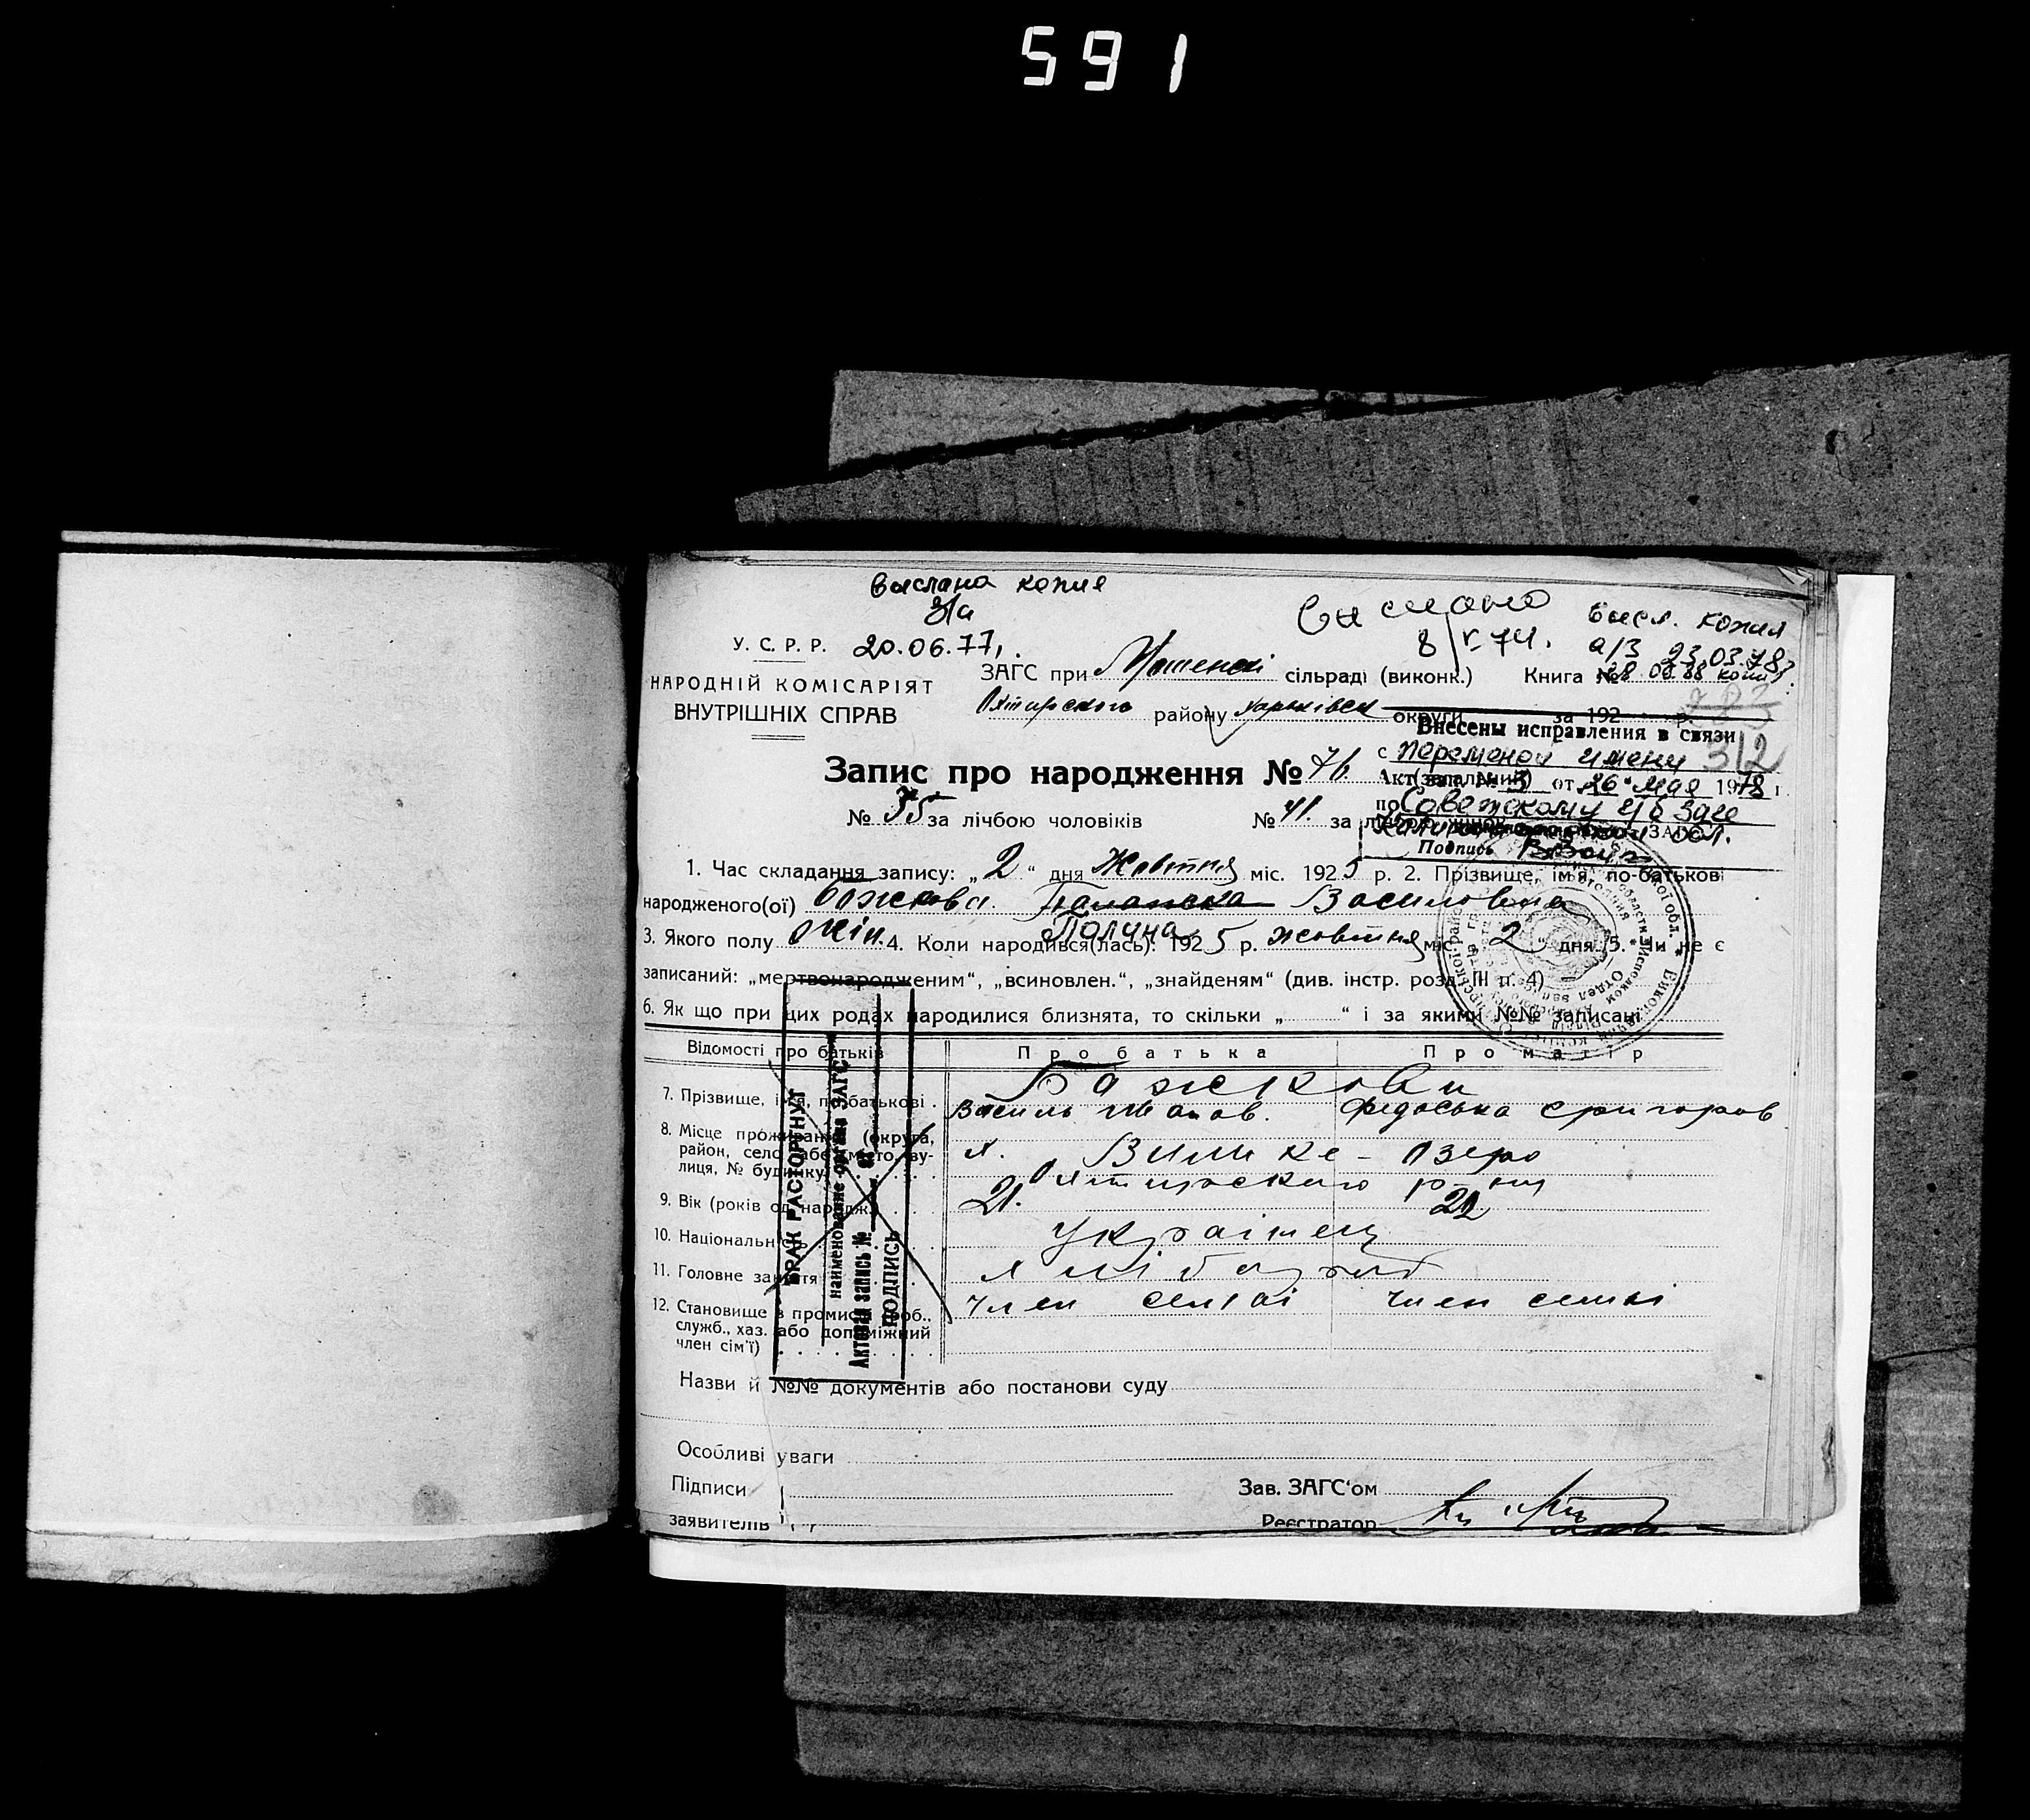 591
Выслана копия
з/а
20.06.77
Выслано
8/V.74.
высл. копия
а/з 23.03.78
У. С. Р. Р.
НАРОДНІЙ КОМІСАРІЯТ
ВНУТРІШНІХ СПРАВ
ЗАГС при сільраді (виконк.) Книга №
Охтирського району Харківськ округи за 192 р.
312
Внесены исправления в связи
с переменой имени
Акт (запись) № 3 от 26 мая 1978 г.
по Советскому г/б Загс
Подпись
Запис про народження № 76.
№ 35 за лічбою чоловіків № 41. за лічбою жінок
1. Час складання запису: „2“ дня Жовтня міс. 1925 р. 2. Прізвище, ім'я, по-батькові
народженого(ої) Божкова Палажка Василовна
Полина
3. Якого полу жін. 4. Коли народився(лась): 1925 р. жовтня міс. 2 дня. 5. Чи не є
записаний: „мертвонародженим“, „всиновлен.“, „знайденям“ (див. інстр. розд. III п. 4) —
6. Як що при цих родах народилися близнята, то скільки „ “ і за якими №№ записані
Відомості про батьків Про батька Про матір
7. Прізвище, ім'я, по-батькові Бажкови
Василь Иванов. Федоська Григоров
8. Місце проживання (округа, район, село або місто, вулиця, № будинку) х. Вилике-Озеро
Охтирского р-ну
9. Вік (років од народж.) 21. 21
10. Національність Українец
11. Головне заняття хлібороб
12. Становище в промислі (роб., служб., хаз. або допоміжний член сім'ї) член семьі член семьі
БРАК РАСТОРГНУТ
наименование органа ЗАГС
Актовая запись №
ПОДПИСЬ
Назви й №№ документів або постанови суду
Особливі уваги
Підписи
заявителів
Зав. ЗАГС'ом
Реєстратор